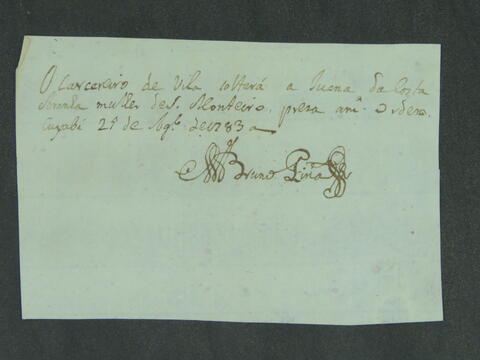 O Carcereiro de Vila solterá a Juana da Costa
Miranda mulher de S. Monteiro, preza a m.ª Ordem.
Cuyabá 21 de Ag.to de 1783 a
Bruno Pina